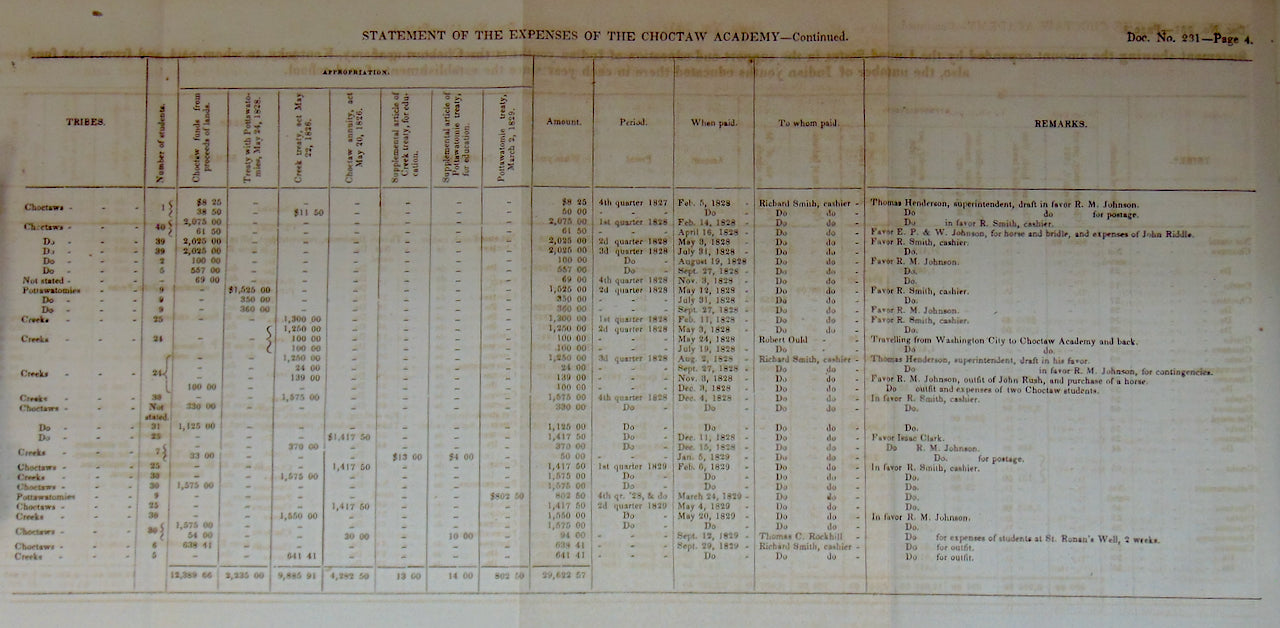 STATEMENT OF THE EXPENSES OF THE CHOCTAW ACADEMY—Continued.
Doc. No. 231—Page 4.
TRIBES.
Number of students.
APPROPRIATION.
Choctaw funds from proceeds of lands.
Treaty with Pottawatomies, May 24, 1828.
Creek treaty, act May 22, 1826.
Choctaw annuity, act May 20, 1826.
Supplemental article of Creek treaty, for education.
Supplemental article of Pottawatomie treaty, for education.
Pottawatomie treaty, March 2, 1829.
Amount.
Period.
When paid.
To whom paid.
REMARKS.
Choctaws - - - 1 { $8 25 - - - - - - $8 25 4th quarter 1827 Feb. 5, 1828 - Richard Smith, cashier - Thomas Henderson, superintendent, draft in favor R. M. Johnson.
38 50 - $11 50 - - - - 50 00 - - Do - Do do - Do do for postage.
Choctaws - - - 40 { 2,075 00 - - - - - - 2,075 00 1st quarter 1828 Feb. 14, 1828 - Do do - Do in favor R. Smith, cashier.
61 50 - - - - - - 61 50 - - April 16, 1828 - Do do - Favor E. P. & W. Johnson, for horse and bridle, and expenses of John Riddle.
Do - - - 39 2,025 00 - - - - - - 2,025 00 2d quarter 1828 May 3, 1828 - Do do - Favor R. Smith, cashier.
Do - - - 39 2,025 00 - - - - - - 2,025 00 3d quarter 1828 July 31, 1828 - Do do - Do.
Do - - - 2 100 00 - - - - - - 100 00 Do - August 19, 1828 Do do - Favor R. M. Johnson.
Do - - - 5 557 00 - - - - - - 557 00 Do - Sept. 27, 1828 - Do do - Do.
Not stated - - - 69 00 - - - - - - 69 00 4th quarter 1828 Nov. 3, 1828 - Do do - Do.
Pottawatomies - - 9 - $1,525 00 - - - - - 1,525 00 2d quarter 1828 May 12, 1828 - Do do - Favor R. Smith, cashier.
Do - - - 9 - 350 00 - - - - - 350 00 - - July 31, 1828 - Do do - Do.
Do - - - 9 - 360 00 - - - - - 360 00 - - Sept. 27, 1828 - Do do - Favor R. M. Johnson.
Creeks - - - 25 - - 1,300 00 - - - - 1,300 00 1st quarter 1828 Feb. 11, 1828 - Do do - Favor R. Smith, cashier.
Creeks - - - 24 { 1,250 00 - - - - 1,250 00 2d quarter 1828 May 3, 1828 - Do do - Do.
100 00 - - - - 100 00 - - May 24, 1828 - Robert Ould - Travelling from Washington City to Choctaw Academy and back.
100 00 - - - - 100 00 - - July 19, 1828 - Do - Do do
Creeks - - - 24 { - - 1,250 00 - - - - 1,250 00 3d quarter 1828 Aug. 2, 1828 - Richard Smith, cashier - Thomas Henderson, superintendent, draft in his favor.
- - 24 00 - - - - 24 00 - - Sept. 27, 1828 - Do do - Do in favor R. M. Johnson, for contingencies.
- - 139 00 - - - - 139 00 - - Nov. 3, 1828 - Do do - Favor R. M. Johnson, outfit of John Rush, and purchase of a horse.
100 00 - - - - - - 100 00 - - Dec. 3, 1828 - Do do - Do outfit and expenses of two Choctaw students.
Creeks - - - 38 - - 1,575 00 - - - - 1,575 00 4th quarter 1828 Dec. 4, 1828 - Do do - In favor R. Smith, cashier.
Choctaws - - - Not stated. 330 00 - - - - - - 330 00 Do - Do - Do do - Do.
Do - - - 31 1,125 00 - - - - - - 1,125 00 Do - Do - Do do - Do.
Do - - - 25 - - - $1,417 50 - - - 1,417 50 Do - Dec. 11, 1828 - Do do - Favor Isaac Clark.
Creeks - - - 7 { - - 370 00 - - - - 370 00 Do - Dec. 15, 1828 - Do do - Do R. M. Johnson.
33 00 - - - $13 00 $4 00 - 50 00 - - Jan. 5, 1829 - Do do - Do. for postage.
Choctaws - - - 25 - - - 1,417 50 - - - 1,417 50 1st quarter 1829 Feb. 6, 1829 - Do do - In favor R. Smith, cashier.
Creeks - - - 30 - - 1,575 00 - - - - 1,575 00 Do - Do - Do do - Do.
Choctaws - - - 30 1,575 00 - - - - - - 1,575 00 Do - Do - Do do - Do.
Pottawatomies - - 9 - - - - - - $802 50 802 50 4th qr. '28, & do March 24, 1829 - Do do - Do.
Choctaws - - - 25 - - - 1,417 50 - - - 1,417 50 2d quarter 1829 May 4, 1829 - Do do - Do.
Creeks - - - 30 - - 1,550 00 - - - - 1,550 00 Do - May 20, 1829 - Do do - In favor R. M. Johnson.
Choctaws - - - 30 { 1,575 00 - - - - - - 1,575 00 Do - Do - Do do - Do.
54 00 - - 30 00 - 10 00 - 94 00 - - Sept. 12, 1829 - Thomas C. Rockhill - Do for expenses of students at St. Ronan's Well, 2 weeks.
Choctaws - - - 6 638 41 - - - - - - 638 41 - - Sept. 29, 1829 - Richard Smith, cashier - Do for outfit.
Creeks - - - 5 - - 641 41 - - - - 641 41 - - Do - Do do - Do for outfit.
12,389 66 2,235 00 9,885 91 4,282 50 13 00 14 00 802 50 29,622 57